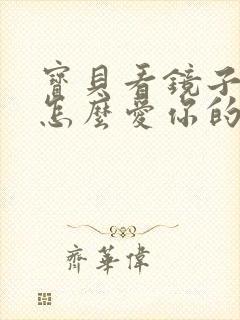 寶貝看鏡子
怎麼愛你的
齊華偉